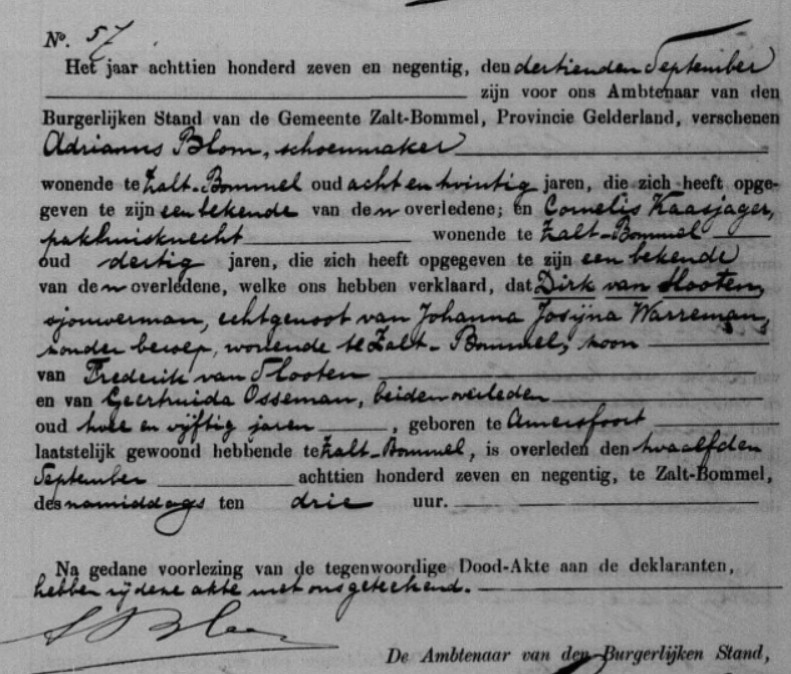 No. 57
Het jaar achttien honderd zeven en negentig, den dertienden September
zijn voor ons Ambtenaar van den
Burgerlijken Stand van de Gemeente Zalt-Bommel, Provincie Gelderland, verschenen
Adrianus Blom, schoenmaker
wonende te Zalt-Bommel oud acht en twintig jaren, die zich heeft opge-
geven te zijn een bekende van den overledene; en Cornelis Kaasjager,
pakhuisknecht wonende te Zalt-Bommel
oud dertig jaren, die zich heeft opgegeven te zijn een bekende
van den overledene, welke ons hebben verklaard, dat Dirk van Slooten,
sjouwerman, echtgenoot van Johanna Josijna Warreman,
zonder beroep, wonende te Zalt-Bommel, zoon
van Frederik van Slooten
en van Geertruida Osseman, beiden overleden
oud twee en vijftig jaren, geboren te Amersfoort
laatstelijk gewoond hebbende te Zalt-Bommel, is overleden den twaalfden
September achttien honderd zeven en negentig, te Zalt-Bommel,
des namiddags ten drie uur.
Na gedane voorlezing van de tegenwoordige Dood-Akte aan de deklaranten,
hebben zij deze akte met ons geteekend.
A Blom
De Ambtenaar van den Burgerlijken Stand,